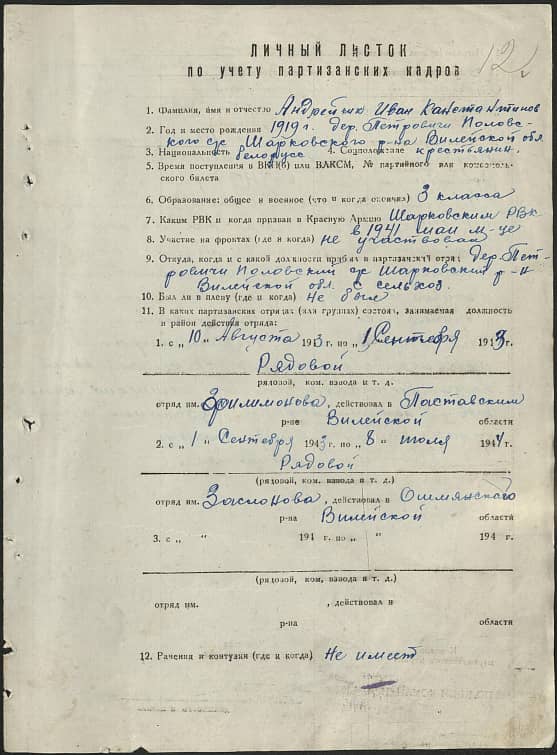 12
ЛИЧНЫЙ ЛИСТОК
по учету партизанских кадров
1. Фамилия, имя и отчество Андрейчик Иван Константинов
2. Год и место рождения 1919 г. дер. Петровичи Половс-
кого с/с Шарковского р-на Вилейской обл
3. Национальность белорусс 4. Соцположение крестьянин.
5. Время поступления в ВКП(б) или ВЛКСМ, № партийного или комсомоль-
ского билета
6. Образование: общее и военное (что и когда окончил) 3 класса
7. Каким РВК и когда призван в Красную Армию Шарковским РВК
в 1941 маи м-це
8. Участие на фронтах (где и когда) не участвовал
9. Откуда, когда и с какой должности прибыл в партизанский отряд дер. Пет-
ровичи Половский с/с Шарковский р-н
Вилейской обл. с сельхоз.
10. Был ли в плену (где и когда) Не был
11. В каких партизанских отрядах (или группах) состоял, занимаемая должность
и район действия отряда:
1. с „10„ Августа 1943 г. по „1„ Сентября 1943 г.
Рядовой
рядовой, ком. взвода и т. д.
отряд им. Филимонова, действовал в Паставским
р-не Вилейской области
2. с „1„ Сентября 1943 г. по „8„ июля 1944 г.
Рядовой
(рядовой, ком. взвода и т. д.)
отряд им. Заслонова, действовал в Ошмянского
р-на Вилейской области
3. с „ „ 194 г. по „ „ 194 г.
(рядовой, ком, взвода и т. д.)
отряд им. , действовал в
р-на области
12. Ранения и контузии (где и когда) Не имеет